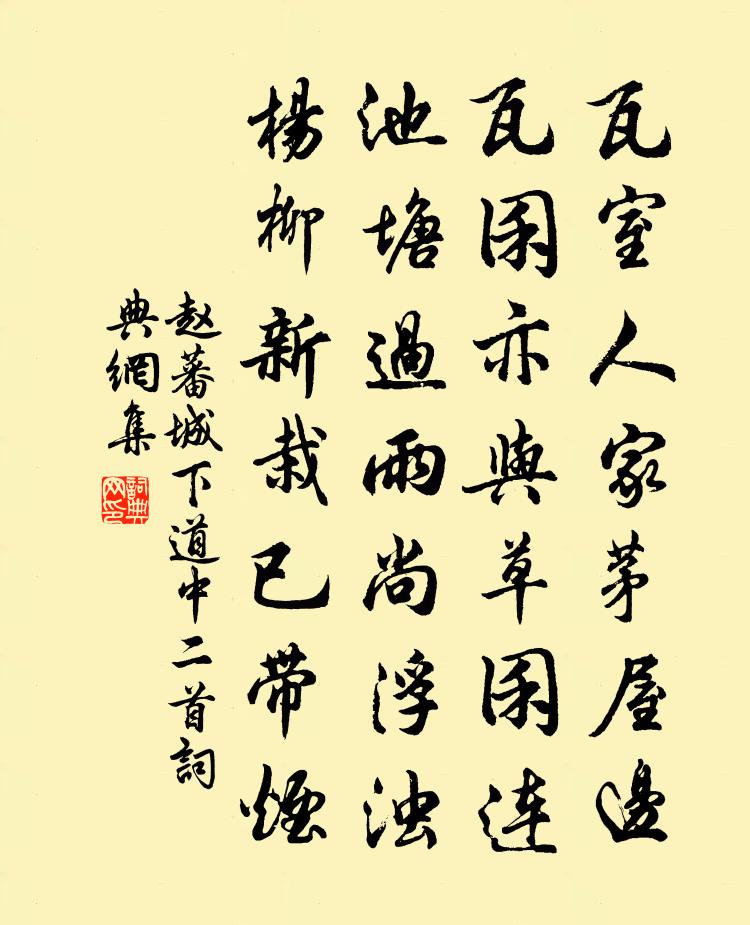 瓦室人家茅屋邊
瓦囷亦與草囷連
池塘過雨尚浮浊
楊柳新栽已帶煙
赵蕃城下道中二首詞
典網集
詞典网印